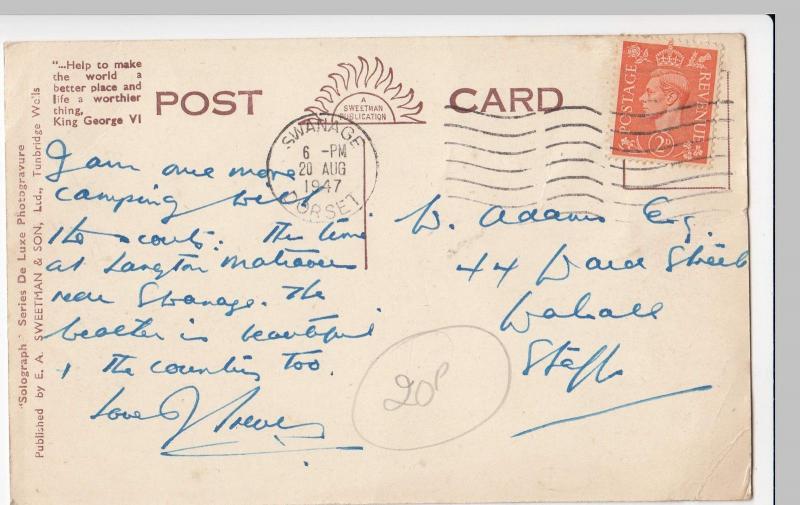 "...Help to make
the world a
better place and
life a worthier
thing,
King George VI
POST CARD
A
SWEETMAN
PUBLICATION
SWANAGE
6 -PM
20 AUG
1947
DORSET
POSTAGE REVENUE
2D
"Solograph" Series De Luxe Photogravure
Published by E. A. SWEETMAN & SON, Ltd., Tunbridge Wells
I am one more
camping with
the scouts: this time
at Langton Matravers
near Swanage. The
weather is beautiful
, the country too.
Love
W. Adams Esq.
44 Ward Street
Walsall
Staffs
20P